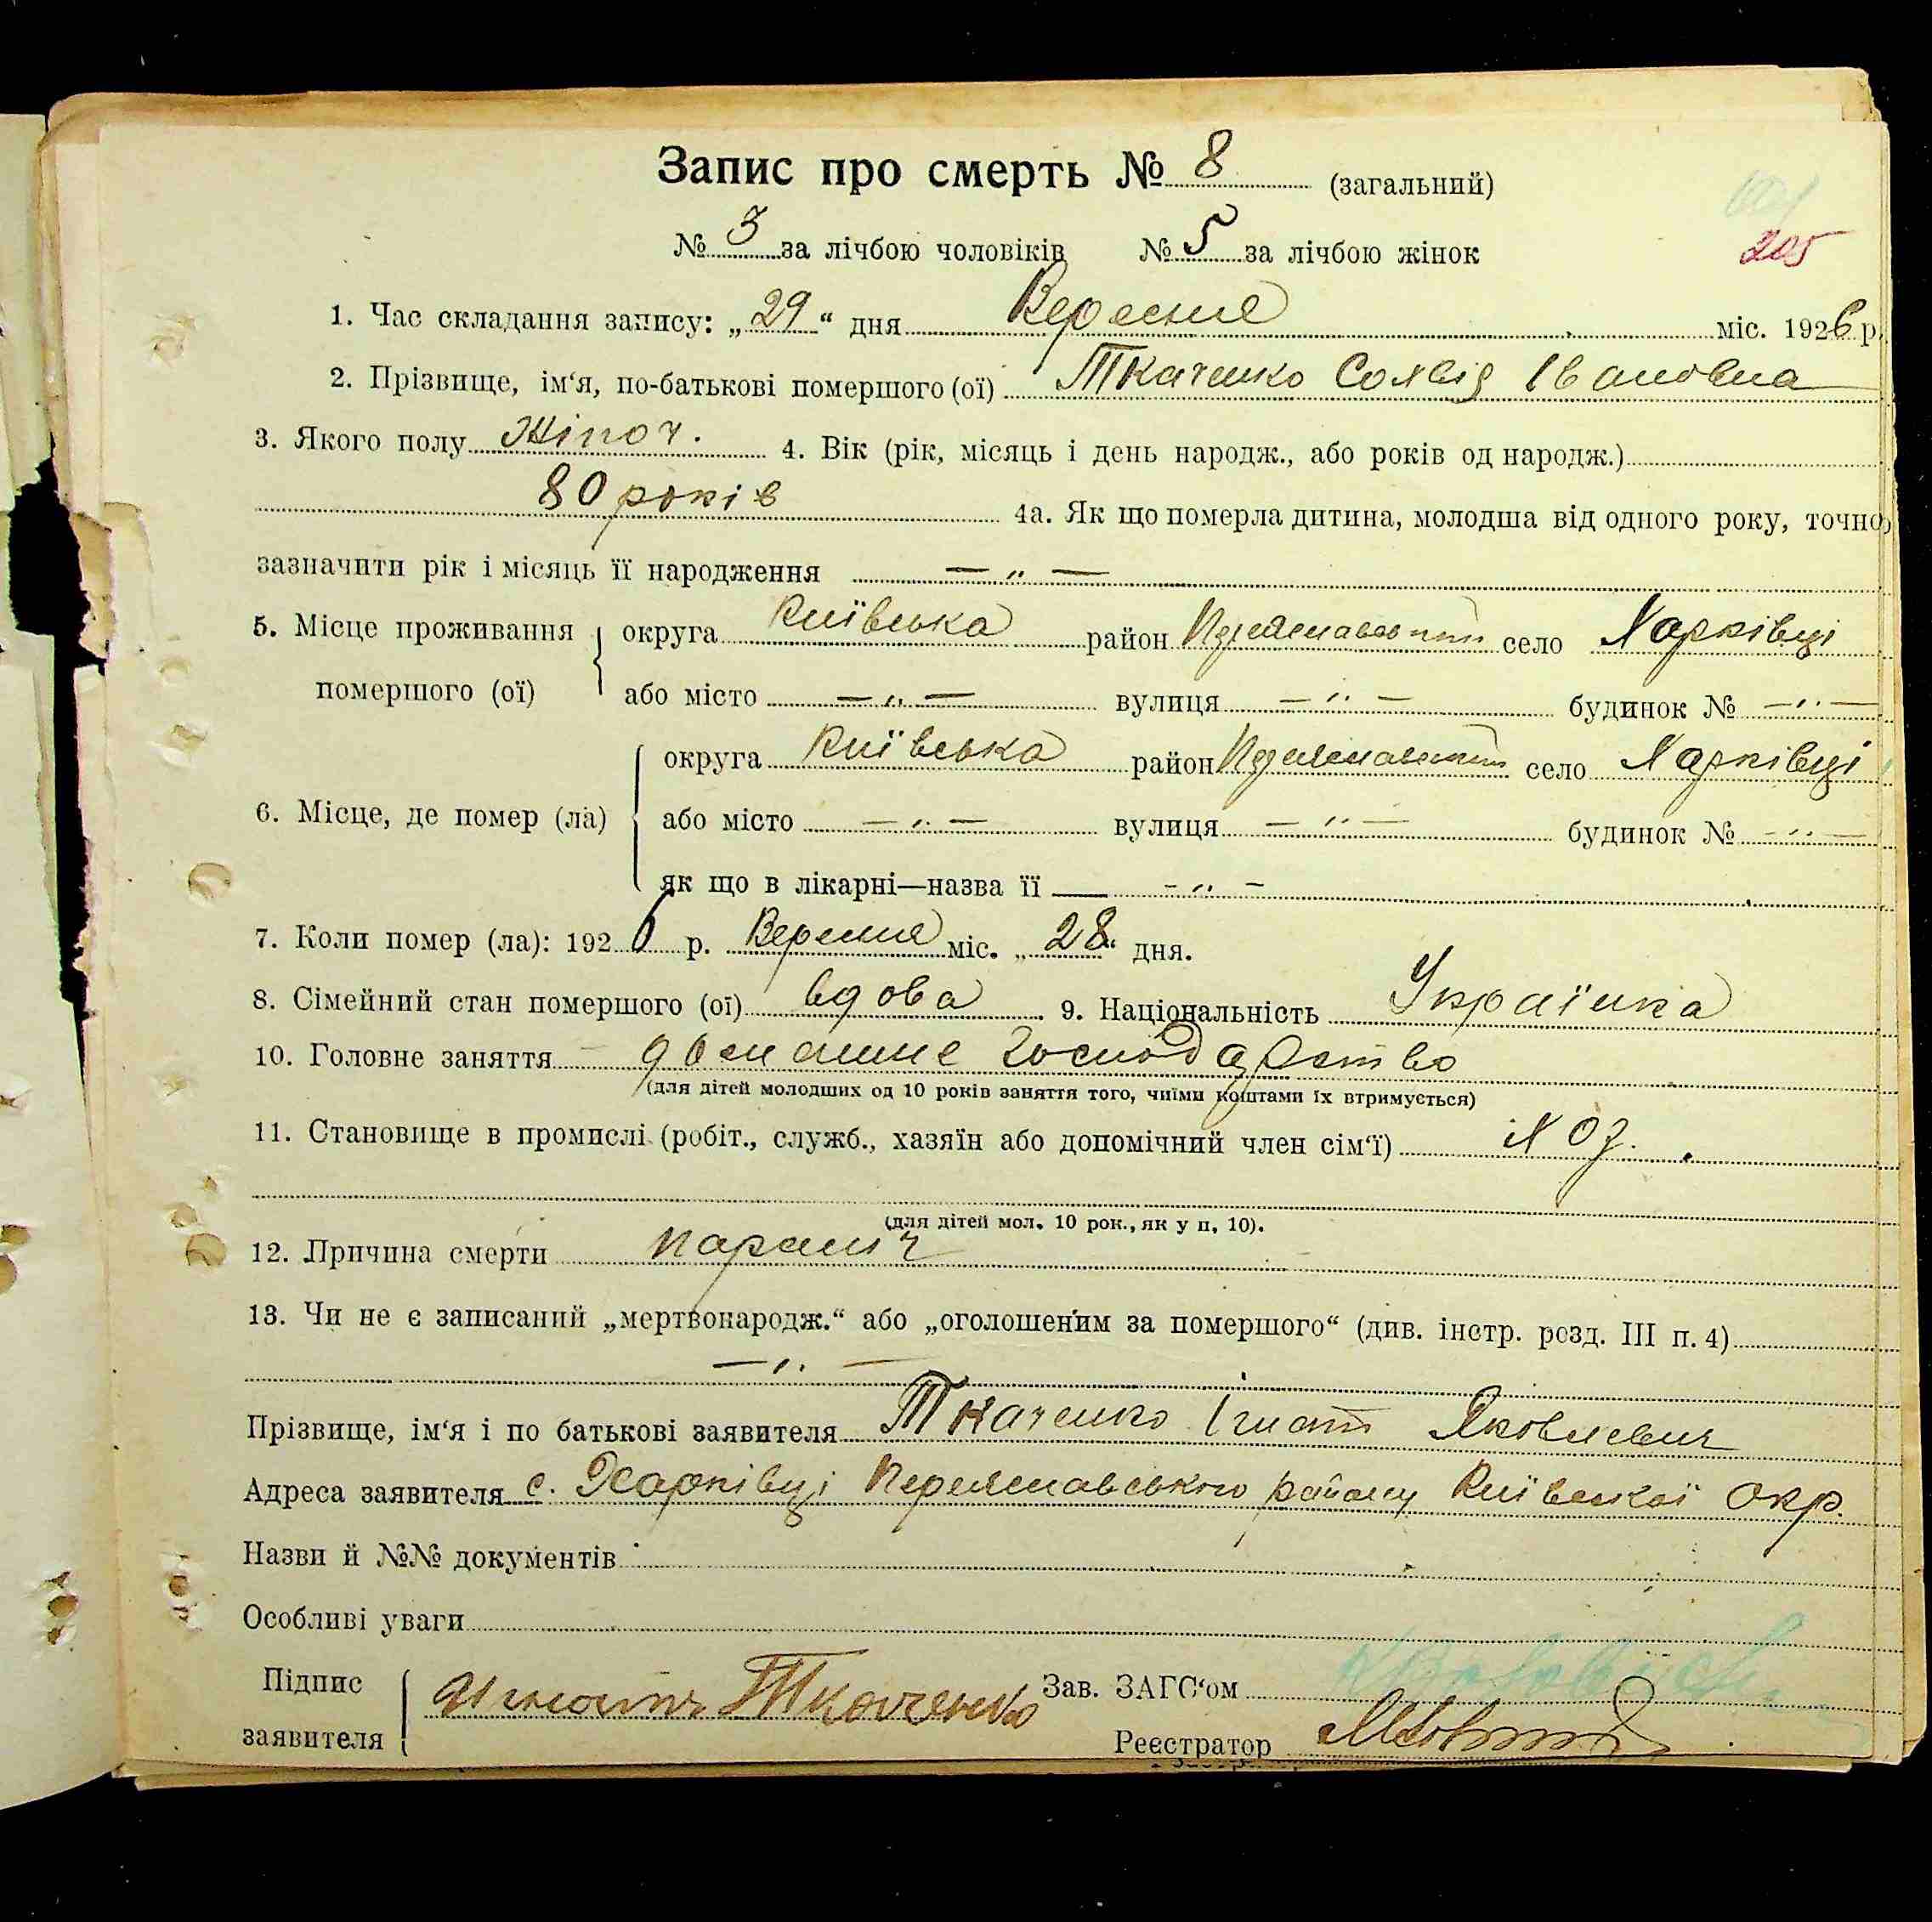 Запис про смерть № 8 (загальний)
205
№ 3 за лічбою чоловіків № 5 за лічбою жінок
1. Час складання запису: „29“ дня Вересня міс. 1926 р.
2. Прізвище, ім‘я, по-батькові помершого (ої) Ткаченко Івановна
3. Якого полу Жіноч. 4. Вік (рік, місяць і день народж., або років од народж.)
80 років 4а. Як що померла дитина, молодша від одного року, точно
зазначити рік і місяць її народження — „ —
5. Місце проживання округа Київська район село Харківці
помершого (ої) або місто — „ — вулиця — „ — будинок № — „ —
округа Київська район село Харківці
6. Місце, де помер (ла) або місто — „ — вулиця — „ — будинок № — „ —
як що в лікарні—назва її — „ —
7. Коли помер (ла): 1926 р. Вересня міс. „28“ дня.
8. Сімейний стан помершого (ої) вдова 9. Національність Українка
10. Головне заняття домашнє господарство
(для дітей молодших од 10 років заняття того, чиїми коштами їх втримується)
11. Становище в промислі (робіт., служб., хазяїн або допомічний член сім‘ї) Хоз.
(для дітей мол. 10 рок., як у п. 10).
12. Причина смерти параліч
13. Чи не є записаний „мертвонародж.“ або „оголошеним за помершого“ (див. інстр. розд. III п. 4)
— „ —
Прізвище, ім‘я і по батькові заявителя Ткаченко Ігнат Яковлевич
Адреса заявителя с. Харківці Переяславського району Київської Окр.
Назви й №№ документів
Особливі уваги
Підпис заявителя Игнатъ Ткаченко Зав. ЗАГС‘ом
Реєстратор